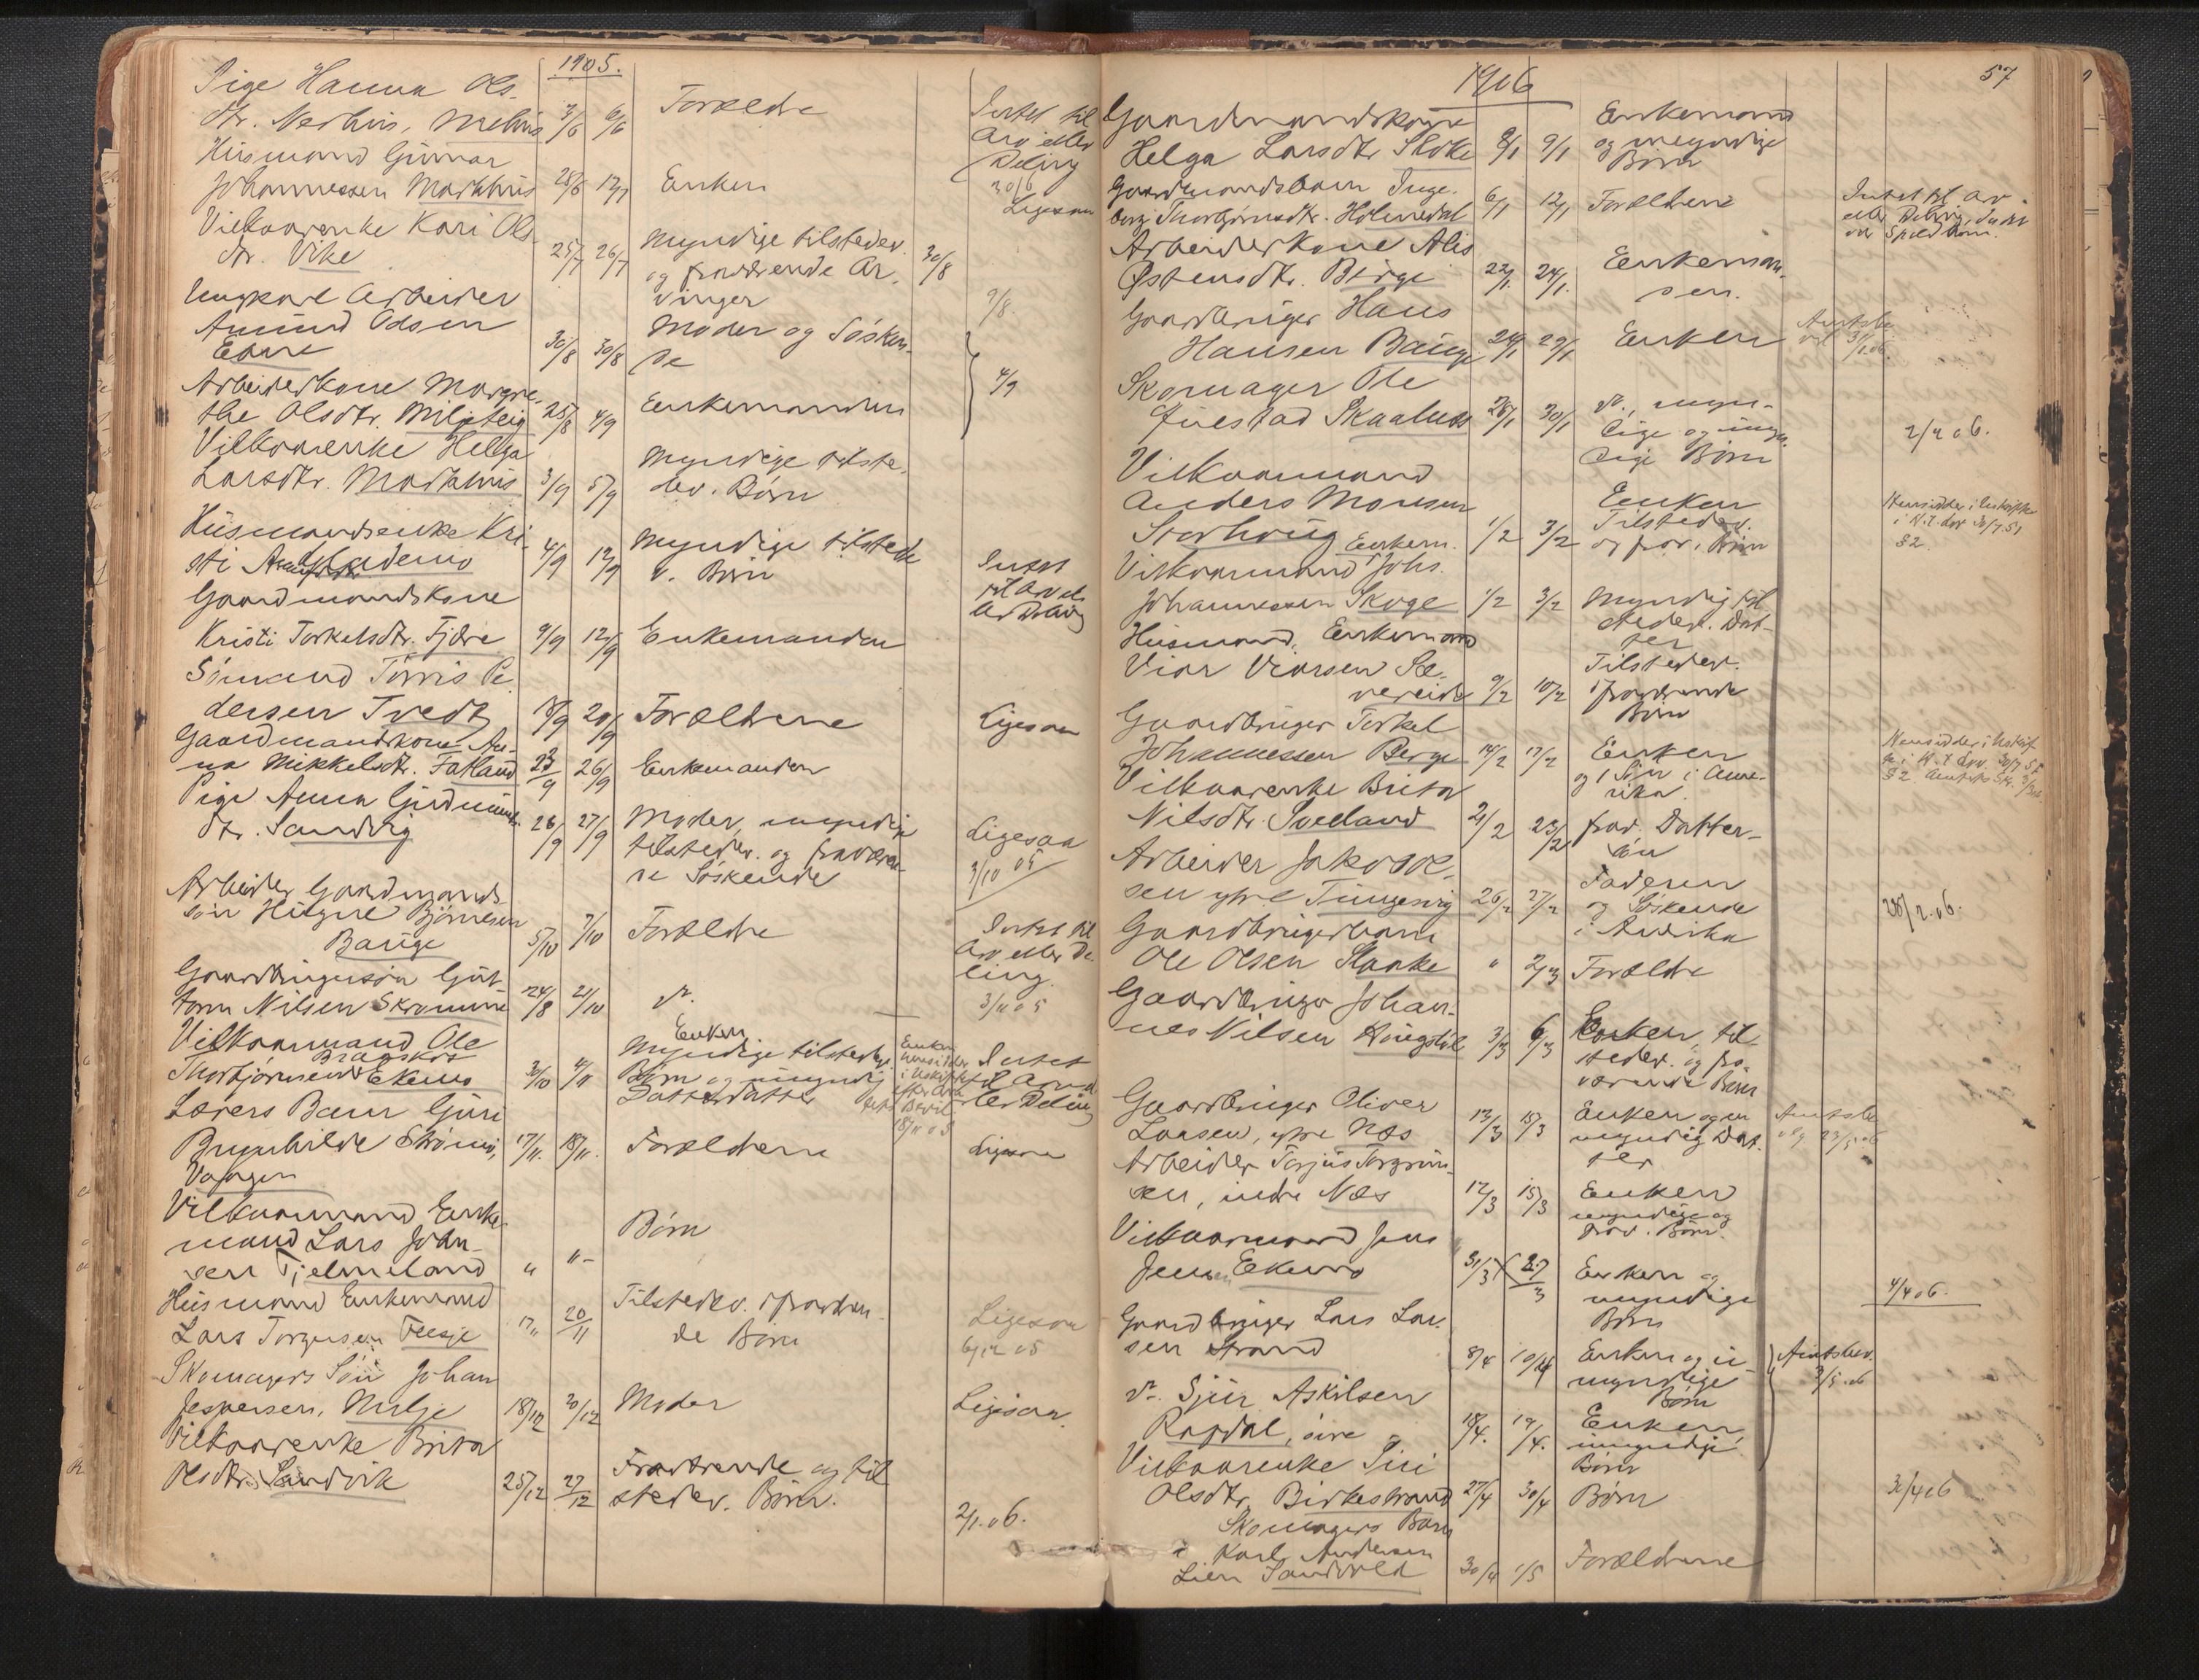 1905.
Pige Hanna Ols-
dtr. Nerhus, Melhus 3/6 6/6 Forældre Intet til
Arv eller
Deling
30/6
Husmand Gunnar
Johannessen Markhus 28/6 12/7 Enken Ligesaa
Vilkaarenke Kari Ols-
dtr. Vike 25/7 26/7 Myndige tilstedev. 30/8
og fraværende Ar-
vinger 9/8.
Ungkarl Arbeider
Amund Odsen
Ebne 30/8 30/8 Moder og Sösken-
de
4/9
Arbeiderkone Margre-
the Olsdtr. 28/8 4/9 Enkemanden
Vilkaarenke Helga
Larsdtr. Markhus 3/9 5/9 Myndige tilste-
dev. Börn
Husmandsenke Kri-
sti 4/9 12/9 Myndige tilstede
v. Börn Intet
til Arv el.
Gaardmandskone
Kristi Torkelsdtr. Fjære 9/9 12/9 Enkemanden
Sömand Törris Pe-
dersen Tvedt 18/9 20/9 Forældrene Ligesaa
Gaardmandskone An-
na Mikkelsdtr. Fatland 23/9 26/9 Enkemanden
Pige Anna Gudmunds-
dtr. Sandvig 26/9 27/9 Moder, myndige
tilstedev. og fraværen-
de Söskende Ligesaa
3/10 05
Arbeider Gaardmands-
sön Bjørnesen
Bauge 5/10 7/10 Forældre Intet til
Arv eller De-
ling.
3/11 05
Gaardbrugersön Gut-
torm Nilsen Skromme 24/8 21/10
Vilkaarmand Ole
Thorbjörnsen Ekemo 3/10 4/11 Enken
Myndige tilstedev.
Börn og umyndig
Datterdatter Enken
hensidder
i Uskifte
18/11 05 Intet
til Arv el-
ler Deling
Lærers Barn Guri
Brynhilde Ströms-
Vaagen 17/11. 18/11. Forældrene Ligesaa
Vilkaarmand Enke-
mand Lars Johan-
sen Tjelmeland " " - Börn
Husmand Enkemand
Lars Torgersen Teesje 17/11 20/11 Tilstedev. & fraværen-
de Börn Ligesaa
6/12 05
Skomagers Sön Johan
Jespersen, Melje 18/12 20/12 Moder Ligesaa.
Vilkaarenke Brita
Olsdtr. Sandvik 25/12 27/12 Fraværende og til
stedev. Börn.
2/1.06.
1906
57
Gaardmandskone
Helga Larsdtr. 8/1 9/1 Enkemand
og myndige
Börn
Gaardmandsbarn Inge-
borg Thorbjörnsdtr. Holmedal 6/1 12/1 Forældrene Intet til Arv
eller Deling, da det
var Spædbarn.
Arbeiderkone Alis
Østensdtr. Berge 22/1. 24/1. Enkeman-
den.
Gaardbruger Hans
Hansen Bauge 24/1 29/1 Enken Amtsbe
vil 31/1.06.
Skomager Ole
28/1 30/1 myn-
dige og umyn-
dige Börn 2/2 06.
Vilkaarmand
Anders Monsen
Storhoug Enkem. 1/2 3/2 Enken
Tilstedev.
og frav. Börn Hensidder i Uskifte
i H. t. Lov 30/7 51
§ 2.
Vilkaarmand Johs.
Johannessen Skoge 1/2 3/2 Myndig til
stedev. Dat-
ter
Husmand, Enkemand
Viar Viarsen Sæ-
vereide 9/2 10/2 Tilstedev.
& fraværende
Börn
Gaardbruger Torkel
Johannessen Berge 14/2 17/2 Enken
og 1 Sön i Ame-
rika. Hensidder i Uskif
te i H. t. Lov 30/7 51
§ 2
Vilkaarenke Brita
Nilsdtr. Sveeland 21/2 23/2 frav. Datter-
sön
Arbeider Jakob Ol-
sen ytre Tungesvig 26/2 27/2 Faderen
og Söskende
i Amerika 28/2.06.
Gaardbrugerbarn
Ole Olsen " 2/3 Forældre
Gaardbruger Johan-
nes Nilsen Hougstöl 3/3 6/3 Enken, til
stedev. og fra-
værende Börn
Gaardbruger Oliver
Larsen, ytre Næs 13/3 15/3 Enken og en
myndig Dat-
ter Amtsbe
23/3.06
Arbeider Torjus Torgrim-
sen, indre Næs 12/3 15/3 Enken
myndige og
frav. Börn.
Vilkaarmand Jens
Jensen Ekemo 31/3 27/3 Enken og
myndige
Börn 4/4 06.
Gaardbruger Lars Lar-
sen Strand 8/4 10/4 Enken og u-
myndige
Börn Amtsbev.
3/5.06
Sjur Askilsen
Ragdal, övre 18/4. 19/4. Enken
umyndige
Börn
Vilkaarenke Siri
Olsdtr. Birkestrand 27/4 30/4 Börn 30/4 06
Skomagers Barn
Karl Andersen
Lien Sandvold 30/4 1/5 Forældrene